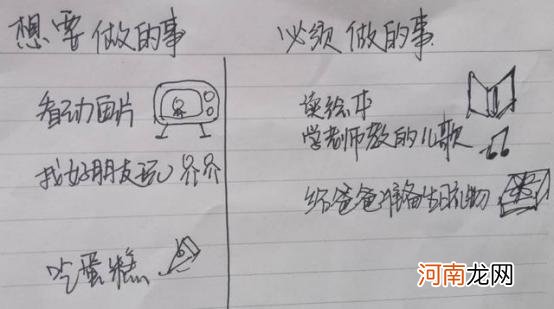 想要做的事
看动画片
找好朋友玩
吃蛋糕
必须做的事
读绘本
学老师教的儿歌
给爸爸准备生日礼物
河南龙网